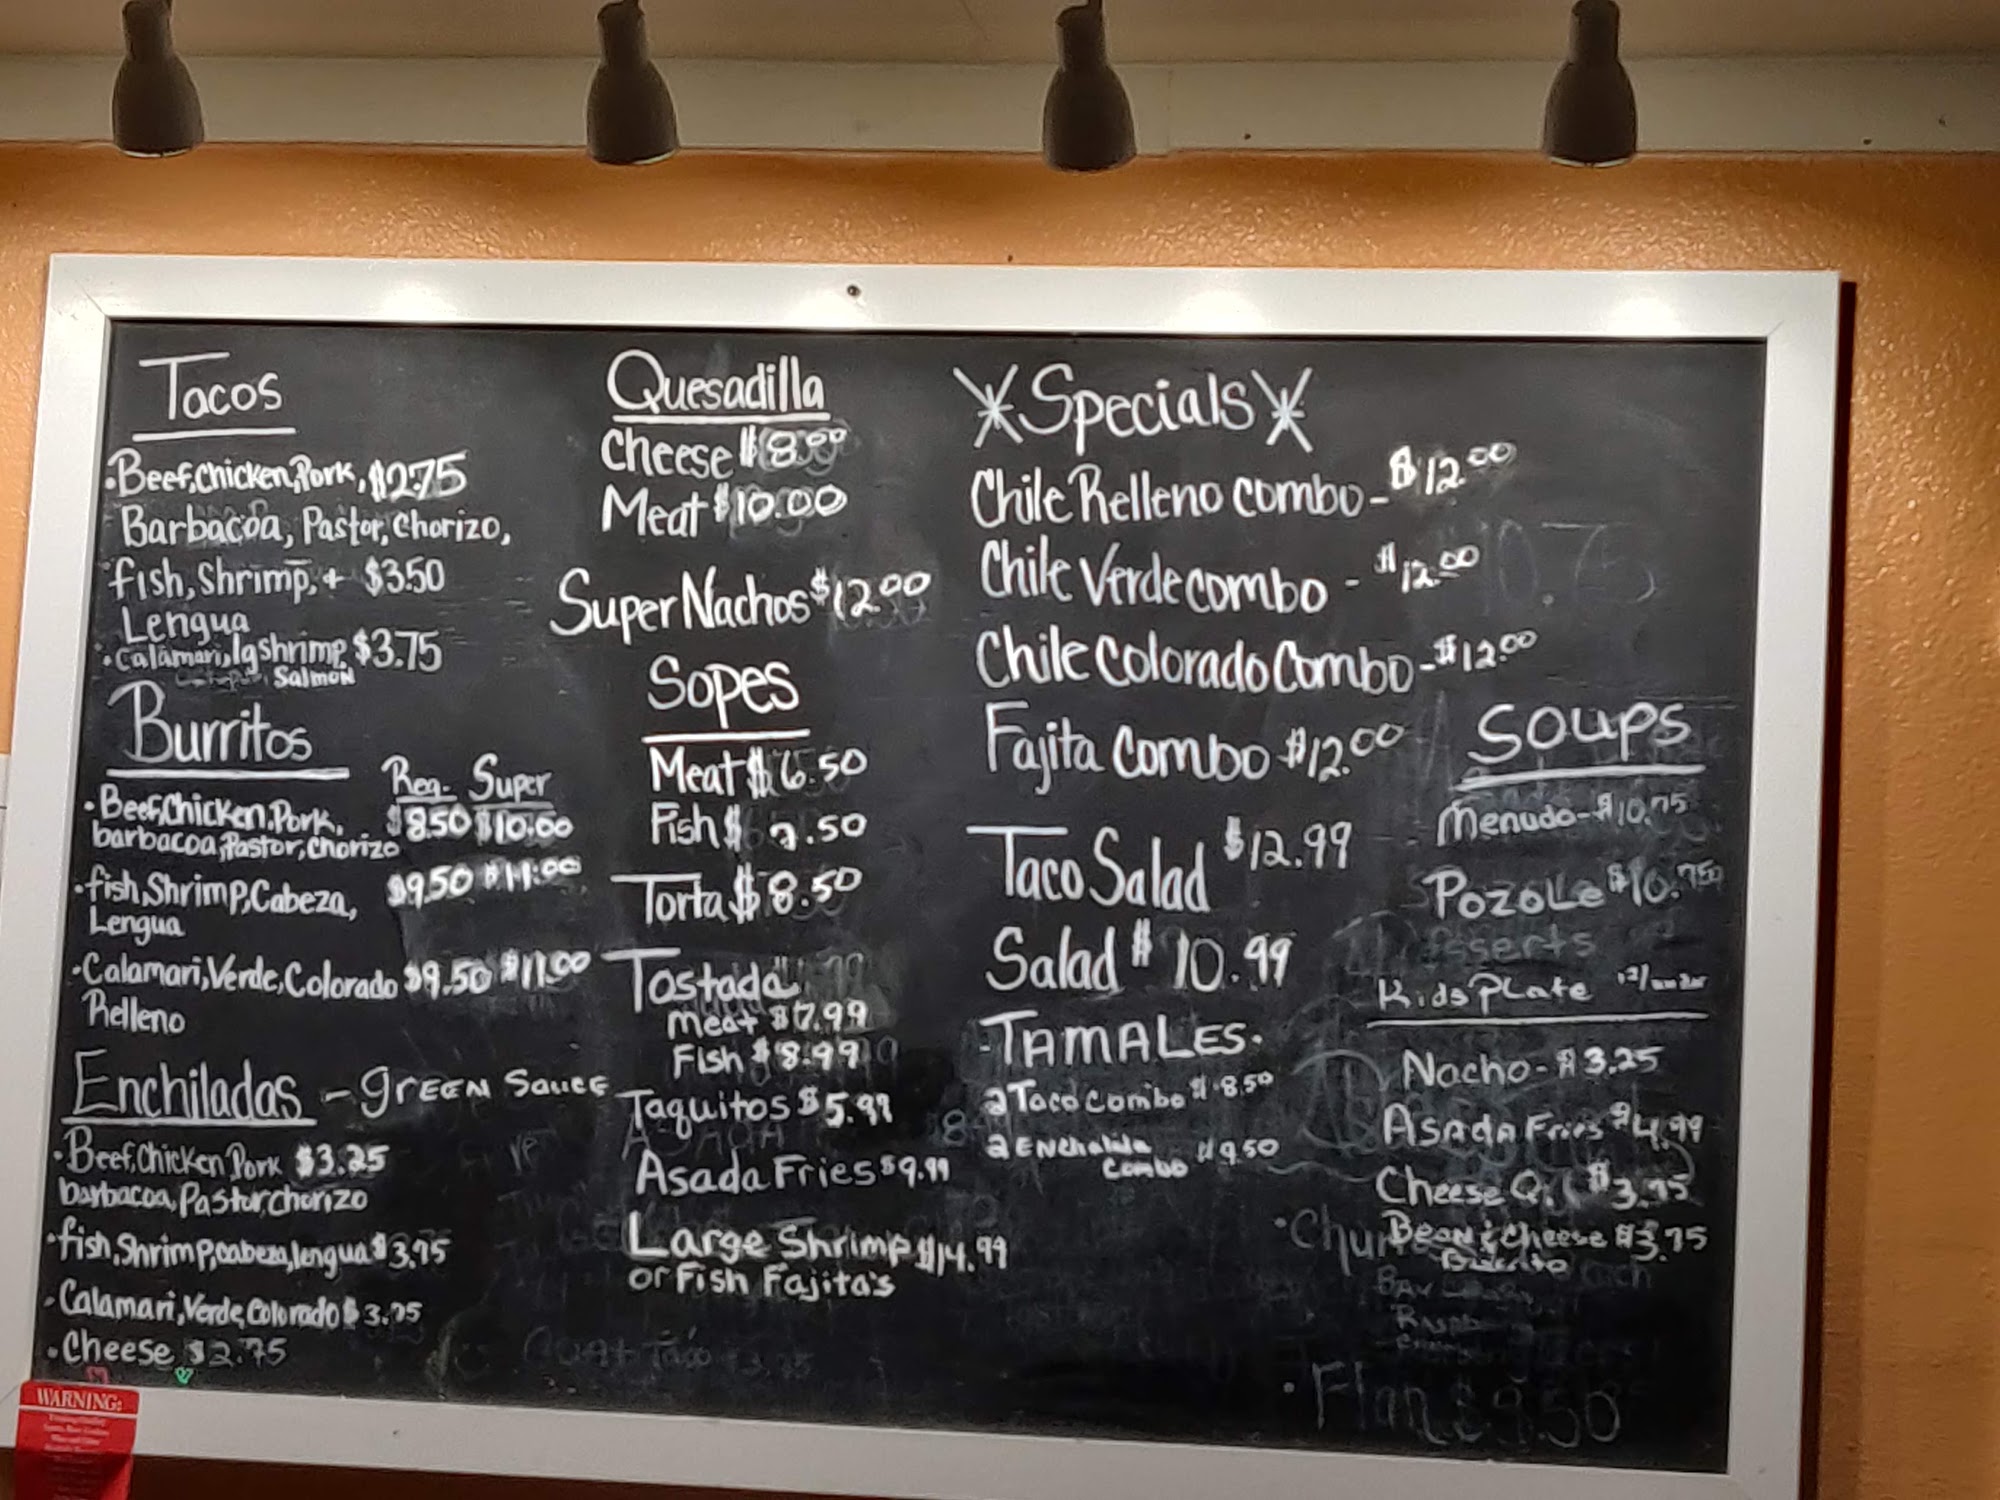 Tacos
•Beef,Chicken,Pork, $2.75
Barbacoa, Pastor, Chorizo,
fish, Shrimp, + $3.50
Lengua
•Calamari, lg shrimp $3.75
Salmon
Burritos
Reg. Super
•Beef,Chicken,Pork, $8.50 $10.00
barbacoa, Pastor, chorizo
•fish, Shrimp, Cabeza, $9.50 $11.00
Lengua
•Calamari, Verde, Colorado $9.50 $11.00
Relleno
Enchiladas - GREEN SAUCE
•Beef,Chicken Pork $3.25
barbacoa, Pastor, chorizo
•fish, Shrimp, cabeza, lengua $3.75
•Calamari, Verde, Colorado $3.75
•Cheese $2.75
Quesadilla
Cheese $8.00
Meat $10.00
Super Nachos $12.00
Sopes
Meat $6.50
Fish $7.50
Torta $8.50
Tostada
Meat $7.99
Fish $8.99
Taquitos $5.99
Asada Fries $9.99
Large Shrimp $14.99
or Fish Fajita's
Specials
Chile Relleno Combo - $12.00
Chile Verde Combo - $12.00
Chile Colorado Combo - $12.00
Fajita Combo $12.00
Taco Salad $12.99
Salad $10.99
-TAMALES.
2 Taco Combo $8.50
2 Enchalida $9.50
Combo
SOUPS
Menudo - $10.75
POZOLE $10.75
Kids Plate
Nacho - $3.25
Asada Fries $4.99
Cheese Q. $3.75
Bean & Cheese $3.75
Burrito
•Flan $9.50
WARNING: